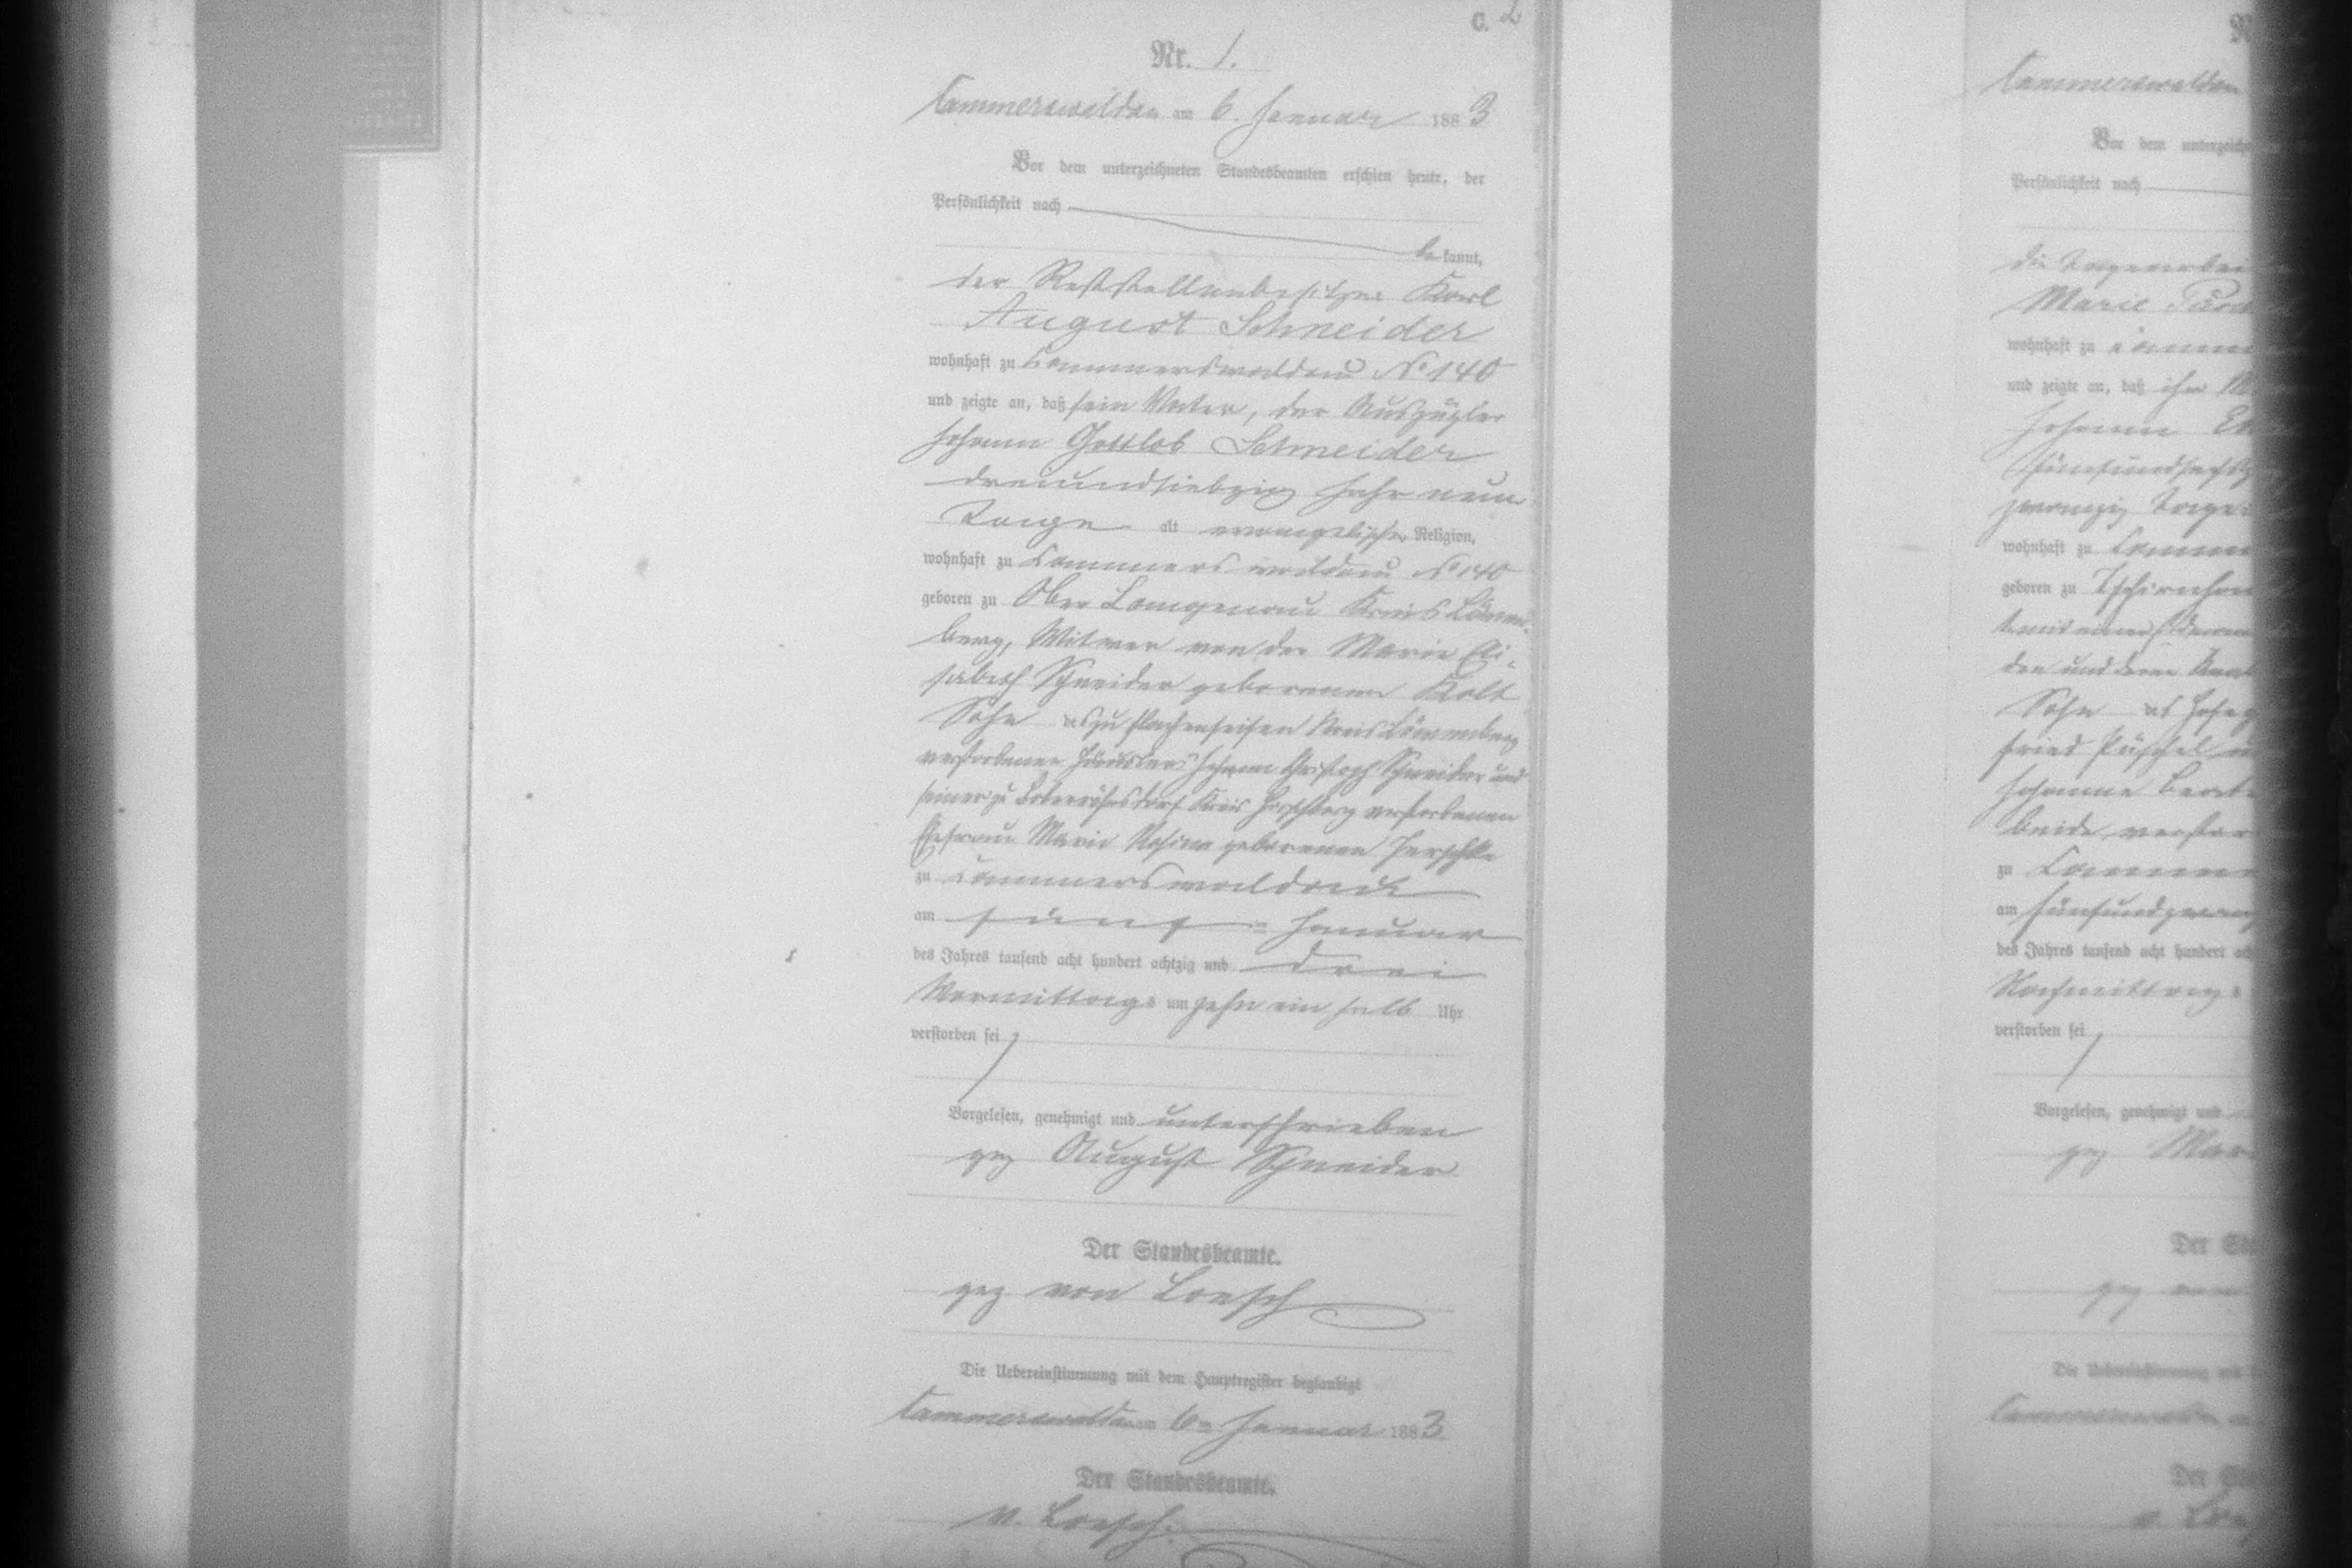 C. 2
Nr. 1.
Cammerswaldau am 6. Januar 1883
Vor dem unterzeichneten Standesbeamten erschien heute, der
Persönlichkeit nach
bekannt,
der Reststellenbesitzer Karl
August Schneider
wohnhaft zu Cammerswaldau No 140
und zeigte an, daß sein Vater, der Auszügler
Johann Gottlob Schneider
dreiundsiebzig Jahr neun
Tage alt evangelischer Religion,
wohnhaft zu Cammerswaldau No 140
geboren zu Ober Langenau Kreis Löwen-
berg, Witwer von der Marie Eli-
sabeth Schneider geborenen Kolt
Sohn des zu Flachenseifen Kreis Löwenberg
verstorbenen Häuslers Johann Christoph Schneider und
seiner zu Kreis Hirschberg verstorbenen
Ehefrau Marie Rosina geborenen
zu Cammerswaldau
am fünf = Januar
des Jahres tausend acht hundert achtzig und drei
Vormittags um zehn ein halb Uhr
verstorben sei
Vorgelesen, genehmigt und unterschrieben
gez August Schneider
Der Standesbeamte.
gez von Loesch
Die Uebereinstimmung mit dem Hauptregister beglaubigt
Cammerswaldau am 6ten Januar 1883
Der Standesbeamte.
v. Loesch.
Cammerswaldau
Vor dem unterzeichn
Persönlichkeit nach
die
Marie
wohnhaft zu Camm
und zeigte an, daß ihr
Johann
fünfundsechzig
zwanzig Tage
wohnhaft zu Camm
geboren zu
den und deren
Sohn des
fried Püschel
Johanne Beate
beide verstor
zu Camm
am fünfundzwan
des Jahres tausend acht hundert ach
Nachmittags
verstorben sei
Vorgelesen, genehmigt und
gez. Mar
Der Sta
gez von
Die Uebereinstimmung mit
Cammerswaldau
Der Sta
v. Loe